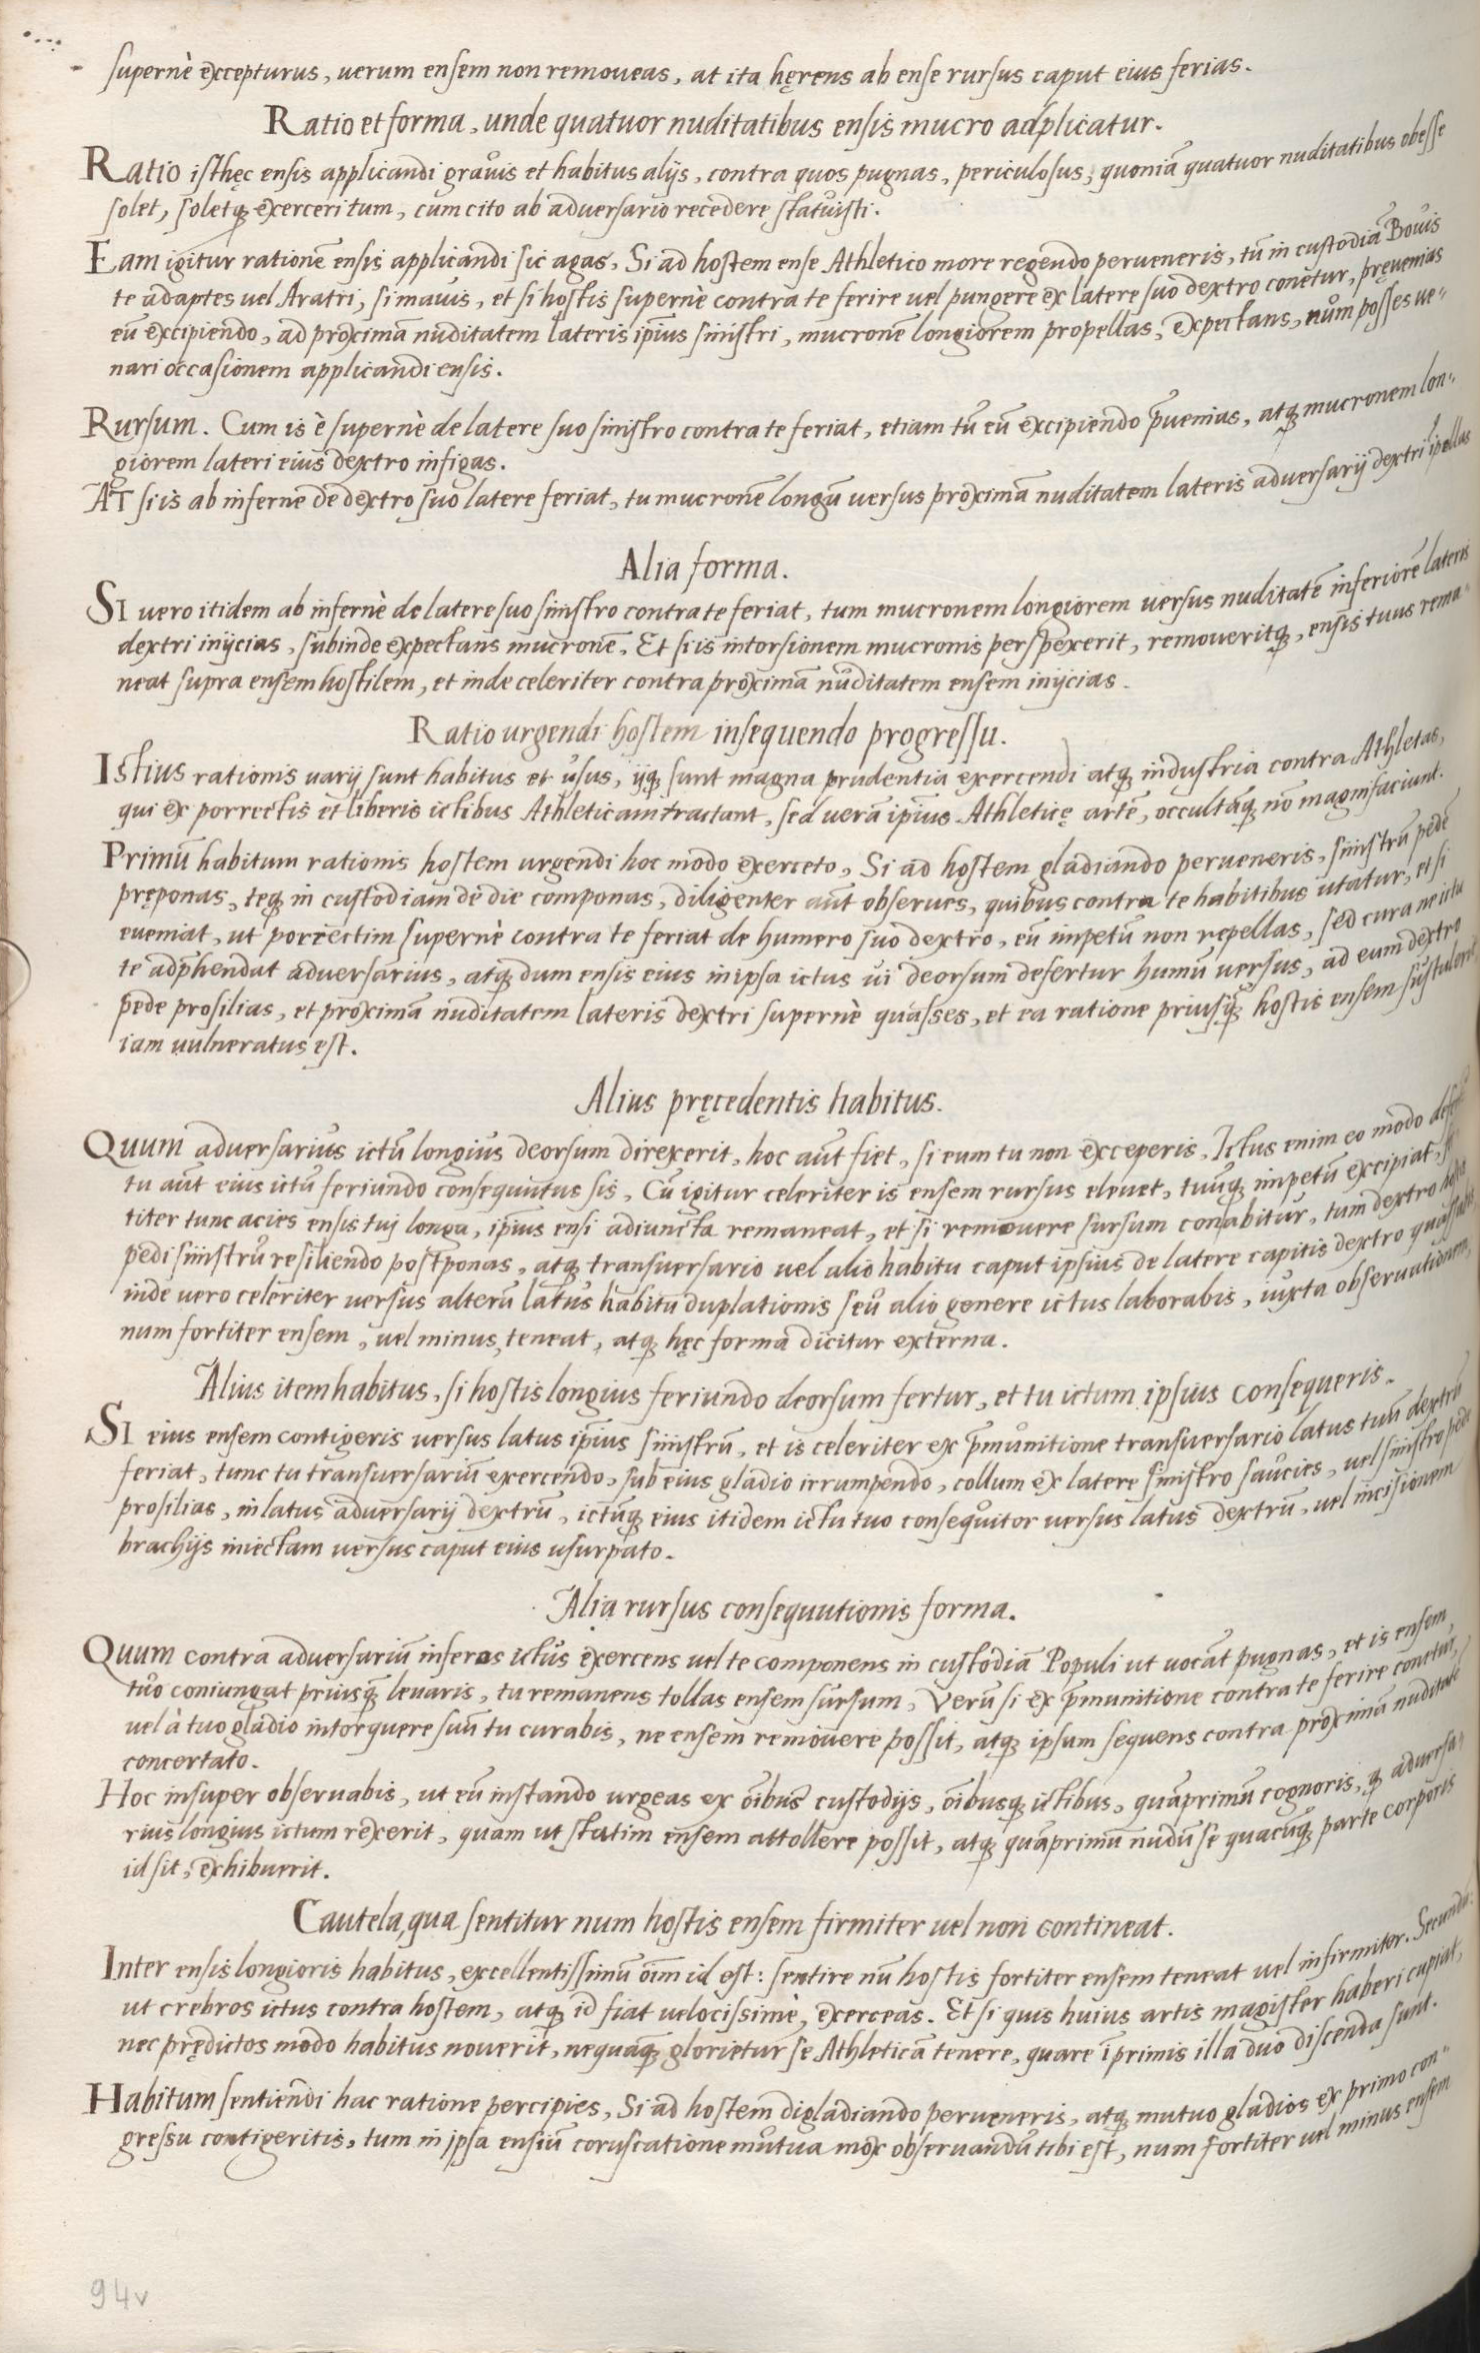 supernè excepturus, uerum ensem non remoueas, at ita hęrens ab ense rursus caput eius ferias.
Ratio et forma, unde quatuor nuditatibus ensis mucro adplicatur.
Ratio isthęc ensis applicandi grauis et habitus alijs, contra quos pugnas, periculosus, quoniã quatuor nuditatibus obesse
solet, soletq; exerceri tum, cum cito ab aduersario recedere statuisti.
Eam igitur rationẽ ensis applicandi sic agas, Si ad hostem ense Athletico more regendo perueneris, tũ in custodiã Bouis
te adaptes uel Aratri, si mauis, et si hostis supernè contra te ferire uel pungere ex latere suo dextro conetur, pręuenias
eũ excipiendo, ad proximã nuditatem lateris ip̃ius sinistri, mucronẽ longiorem propellas, expectans, nũm posses ue-
nari occasionem applicandi ensis.
Rursum. Cum is è supernè de latere suo sinistro contra te feriat, etiam tũ eũ excipiendo p̃uenias, atq; mucronem lon-
giorem lateri eius dextro infigas.
AT si is ab inferne de dextro suo latere feriat, tu mucronẽ longũ uersus proximã nuditatem lateris aduersarij dextri ĩpellas
Alia forma.
SI uero itidem ab infernè de latere suo sinistro contra te feriat, tum mucronem longiorem uersus nuditatẽ inferiorẽ lateris
dextri inijcias, subinde expectans mucronẽ. Et si is intorsionem mucronis perspexerit, remoueritq;, ensis tuus rema-
neat supra ensem hostilem, et inde celeriter contra proximã nuditatem ensem inijcias.
Ratio urgendi hostem insequendo progressu.
Istius rationis uarij sunt habitus et usus, ijq; sunt magna prudentia exercendi atq; industria contra Athletas,
qui ex porrectis et liberis ictibus Athleticam tractant, sed uerã ip̃ius Athleticę artẽ, occultãq; nõ magnifaciunt.
Primũ habitum rationis hostem urgendi hoc modo exerceto, Si ad hostem gladiando perueneris, sinistrũ pedẽ
pręponas, teq; in custodiam de die componas, diligenter aũt obserues, quibus contra te habitibus utatur, et si
eueniat, ut porrectim supernè contra te feriat de humero suo dextro, eũ impetũ non repellas, sed cura ne ictu
te adp̃hendat aduersarius, atq; dum ensis eius in ipsa ictus ui deorsum defertur humũ uersus, ad eum dextro
pede prosilias, et proximã nuditatem lateris dextri supernè quasses, et ea ratione priusq̃ hostis ensem sustulerit
iam uulneratus est.
Alius pręcedentis habitus.
Quum aduersarius ictũ longius deorsum direxerit, hoc aũt fiet, si eum tu non exceperis, Ictus enim eo modo
tu aũt eius ictũ feriundo consequutus sis, Cũ igitur celeriter is ensem rursus eleuet, tuũq; impetũ excipiat,
titer tunc acies ensis tuj longa, ip̃ius ensi adiuncta remaneat, et si remouere sursum conabitur, tum dextro
pedi sinistrũ resiliendo postponas, atq; transuersario uel alio habitu caput ipsius de latere capitis dextro quassabis
inde uero celeriter uersus alterũ latus habitu duplationis seu alio genere ictus laborabis, iuxta obseruationem,
num fortiter ensem, uel minus, teneat, atq; hęc forma dicitur externa.
Alius item habitus, si hostis longius feriundo deorsum fertur, et tu ictum ipsius consequeris.
SI eius ensem contigeris uersus latus ip̃ius sinistrũ, et is celeriter ex p̃munitione transuersario latus tuũ dextrũ
feriat, tunc tu transuersariũ exercendo, sub eius gladio irrumpendo, collum ex latere sinistro saucies, uel sinistro pede
prosilias, in latus aduersarij dextrũ, ictũq; eius itidem ictu tuo consequitor uersus latus dextrũ, uel incisionem
brachijs iniectam uersus caput eius usurpato.
Alia rursus consequutionis forma.
Quum contra aduersariũ inferos ictus exercens uel te componens in custodiã Populi ut uocãt pugnas, et is ensem
tuo coniungat priusq̃ leuaris, tu remanens tollas ensem sursum, Verũ si ex p̃munitione contra te ferire conetur,
uel à tuo gladio intorquere suũ tu curabis, ne ensem remouere possit, atq; ipsum sequens contra proximã nuditatẽ
concertato.
Hoc insuper obseruabis, ut eũ instando urgeas ex õibus custodijs, õibusq; ictibus, quãprimũ cognoris, q; aduersa-
rius longius ictum rexerit, quam ut statim ensem attollere possit, atq; quãprimũ nudũ se quacũq; parte corporis
id sit, exhibuerit.
Cautela, qua sentitur num hostis ensem firmiter uel non contineat.
Inter ensis longioris habitus, excellentissimũ õim id est: sentire nũ hostis fortiter ensem teneat uel infirmiter. Secundũ
ut crebros ictus contra hostem, atq; id fiat uelocissimè, exerceas. Et si quis huius artis magister haberi cupiat,
nec prędictos modo habitus nouerit, nequaq̃; glorietur se Athleticã tenere, quare ĩprimis illa duo discenda sunt.
Habitum sentiendi hac ratione percipies, Si ad hostem digladiando perueneris, atq; mutuo gladios ex primo con-
gressu contigeritis, tum in ipsa ensiũ coruscatione mutua mox obseruandũ tibi est, num fortiter uel minus ensem
94v